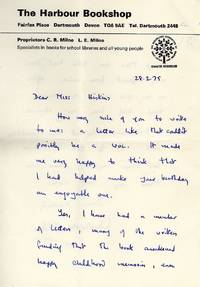 The Harbour Bookshop
Fairfax Place Dartmouth Devon TQ6 9AE Tel. Dartmouth 2448
Proprietors C. R. Milne L. E. Milne
Specialists in books for school libraries and all young people
28.2.75
Dear Miss
How very nice of you to write
to me: a letter like that couldn't
possibly be a
It made
me very happy to think that
I had helped make your birthday
an enjoyable one.
Yes, I have had a number
of letters, many of the writers
finding that the book awakened
happy childhood memories, even